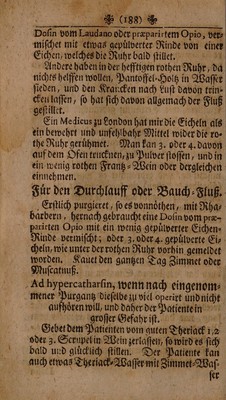 (188)
Dosin vom Laudano oder præparirtem Opio, ver-
mischet mit etwas gepülverter Rinde von einer
Eichen, welches die Ruhr bald stillet.
Andere haben in der hefftigen rothen Ruhr, da
nichts helffen wollen, Pantoffel-Holtz in Wasser
sieden, und den Krancken nach Lust davon trin-
cken lassen, so hat sich davon allgemach der Fluß
gestillet.
Ein Medicus zu London hat mir die Eicheln als
ein bewehrt und unfehlbahr Mittel wider die ro-
the Ruhr gerühmet. Man kan 3. oder 4. davon
auf dem Ofen trucknen, zu Pulver stossen, und in
ein wenig rothen Frantz-Wein oder dergleichen
einnehmen.
Für den Durchlauff oder Bauch-Fluß.
Erstlich purgieret, so es vonnöthen, mit Rha-
barbern, hernach gebrauchet eine Dosin vom præ-
parirten Opio mit ein wenig gepülverter Eichen-
Rinde vermischt; oder 3. oder 4. gepülverte Ei-
cheln, wie unter der rothen Ruhr vorhin gemeldet
worden. Kauet den gantzen Tag Zimmet oder
Muscatnuß.
Ad hypercatharsin, wenn nach eingenom-
mener Purgantz dieselbe zu viel operirt und nicht
aufhören will, und daher der Patiente in
grosser Gefahr ist.
Gebet dem Patienten vom guten Theriack 1. 2
oder 3. Scrupel in Wein zerlassen, so wird es sich
bald und glücklich stillen. Der Patiente kan
auch etwas Theriack-Wasser mit Zimmet-Was-
ser